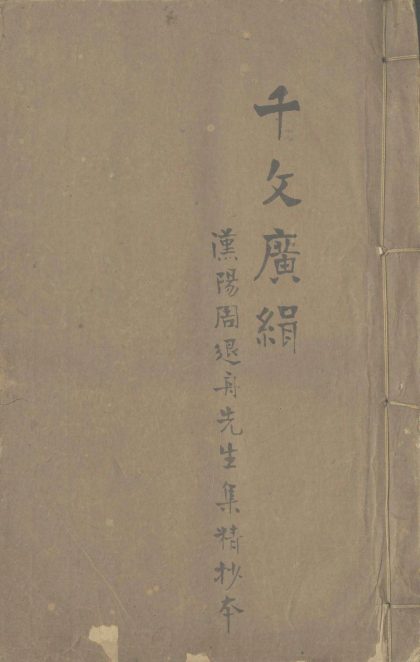 千文廣絹
漢陽周退舟先生集精抄本